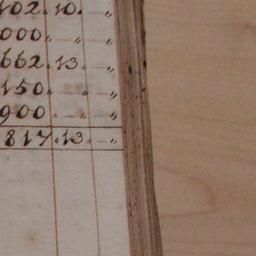 402.10.—„
000.—.—„
662.13.—„
150.—.—„
900.—.—„
817.13.—„